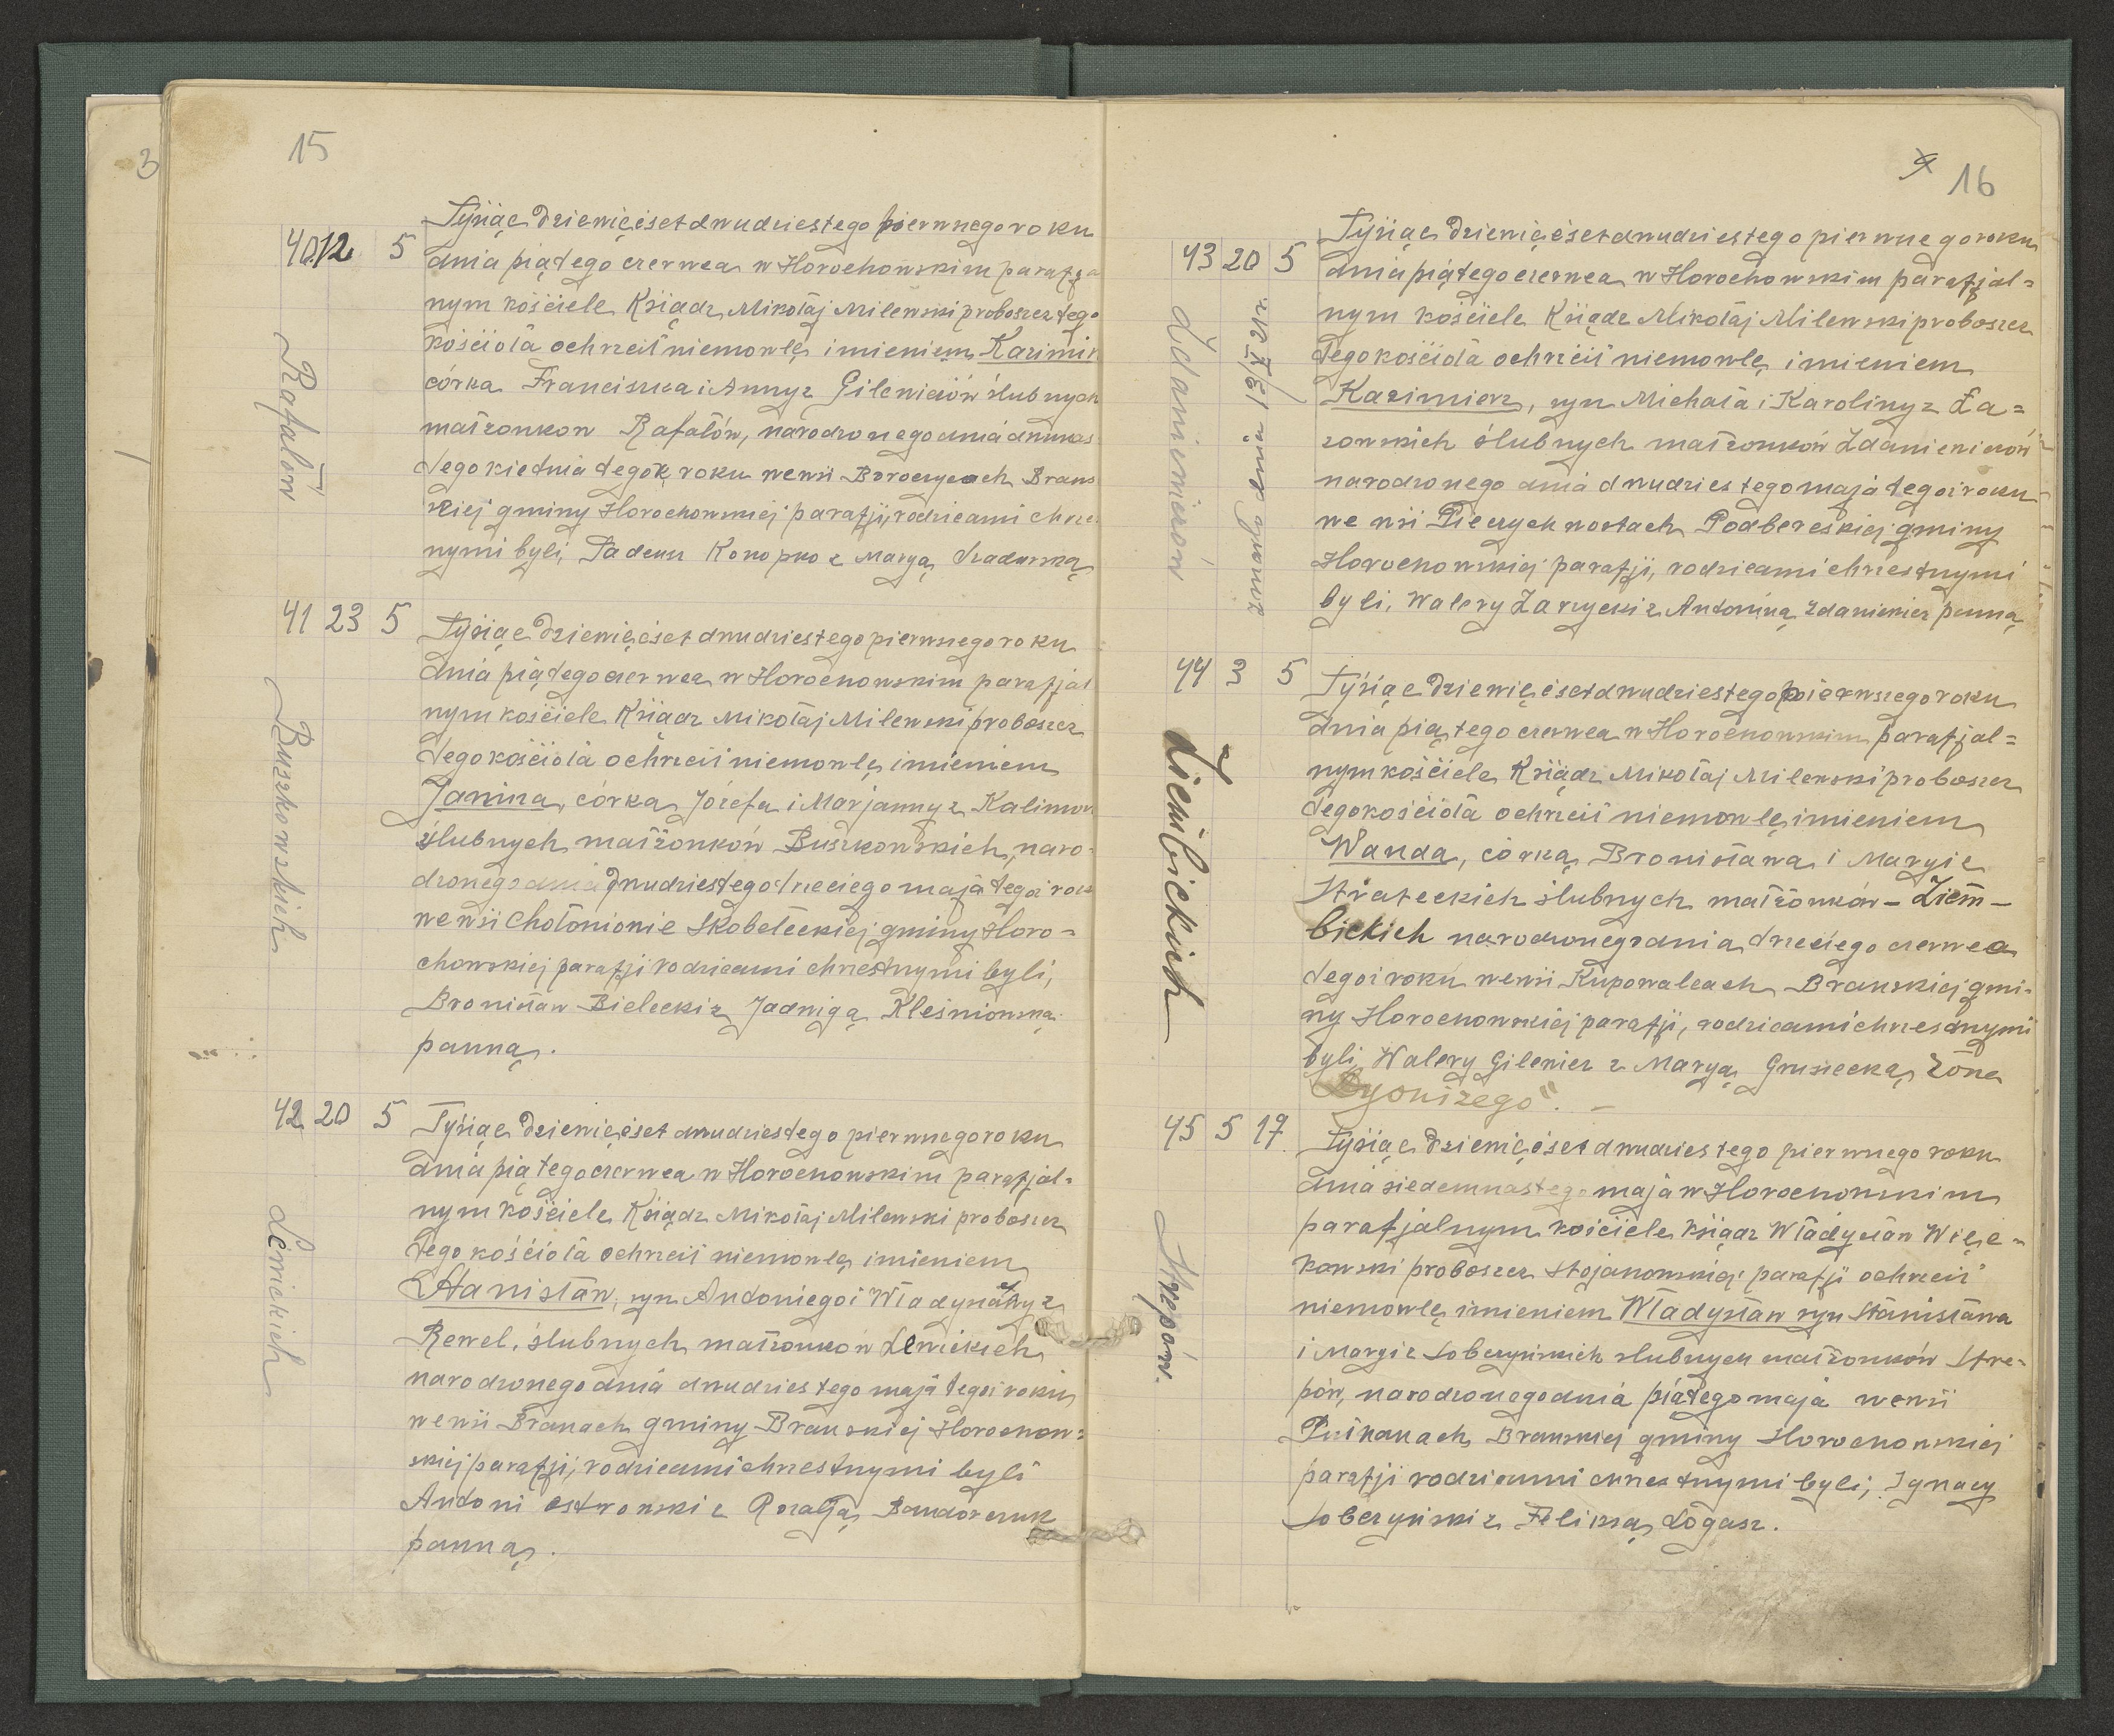 15
40 12 5
Rafałów
Tysiąc dziewięćset dwudziestego pierwszego roku
dnia piątego czerwca w Horochowskim parafja
nym kościele Ksiądz Mikołaj Milewski proboszcz tego
kościoła ochrzcił niemowlę imieniem Kazimir
córka Franciszka i Anny z Gilewiczów ślubnych
małżonkow Rafałów, narodzonego dnia dwunas
tego roku we wsi Boroczycach Brans
kiej gminy Horochowskiej parafji, rodzicami chrze
nymi byli, Tadeusz Konopko z Maryą
41 23 5
Buszkowskich
Tysiąc dziewięćset dwudziestego pierwszego roku
dnia piątego czerwca w Horochowskim parafjal
nym kościele Ksiądz Mikołaj Milewski proboszcz
tego kościoła ochrzcił niemowlę imieniem
Janina, córka Józefa i Marjanny z Kalimon
ślubnych małżonków Buszkowskich, naro-
dzonego dnia dwudziestego trzeciego maja tegoż rok
we wsi Chołoniowie Skobełeckiej gminy Horo-
chowskiej parafji rodzicami chrzestnymi byli,
Bronisław Bielecki z Jadwigą Kleśniowską
panną.
42 20 5
Lewickich
Tysiąc dziewięćset dwudziestego pierwszego roku
dnia piątego czerwca w Horochowskim parafjal-
nym kościele Ksiądz Mikołaj Milewski proboszcz
tego kościoła ochrzcił niemowlę imieniem
Stanisław, syn Antoniego i Władysławy z
Rewel, ślubnych małżonków Lewickich
narodzonego dnia dwudziestego maja tegoż roku
we wsi Branach gminy Branskiej Horochow-
skiej parafji, rodzicami chrzestnymi byli
Antoni Ostrowski z Rozalją Bondarczuk
panną.
16
43 20 5
Zdaniewiczów
zmarło dnia 13/X 21 r.
Tysiąc dziewięćset dwudziestego pierwszego roku
dnia piątego czerwca w Horochowskim parafjal-
nym kościele Ksiądz Mikołaj Milewski proboszcz
tego kościoła ochrzcił niemowlę imieniem
Kazimierz, syn Michała i Karoliny z Ła-
zowskich ślubnych małżonków Zdaniewiczów
narodzonego dnia dwudziestego maja tegoż roku
we wsi Pieczychwostach Podbereskiej gminy
Horochowskiej parafji, rodzicami chrzestnymi
byli, Walery Zarzycki z Antoniną Zdaniewicz panną
44 3 5
Ziembickich
Tysiąc dziewięćset dwudziestego pierwszego roku
dnia piątego czerwca w Horochowskim parafjal-
nym kościele Ksiądz Mikołaj Milewski proboszcz
tego kościoła ochrzcił niemowlę imieniem
Wanda, córką Bronisława i Maryi z
Strateckich ślubnych małżonków - Ziem-
bickich narodzonego dnia trzeciego czerwca
tegoż roku we wsi Kupowalcach Branskiej gmi-
ny Horochowskiej parafji, rodzicami chrzestnymi
byli, Walery Gilewicz z Maryą Grusiecką, żona
Dyonizego". -
45 5 17
Strepów.
Tysiąc dziewięćset dwudziestego pierwszego roku
dnia siedemnastego maja w Horochowskim
parafjalnym kościele ksiądz Władysław Więc-
kowski proboszcz Stojanowskiej parafji ochrzcił
niemowlę imieniem Władysław syn Stanisława
i Maryi z Soberyńskich ślubnych małżonków Stre-
pów, narodzonego dnia piątego maja we wsi
Branskiej gminy Horochowskiej
parafji rodzicami chrzestnymi byli, Ignacy
Soberyński z Feliksą Łogasz.